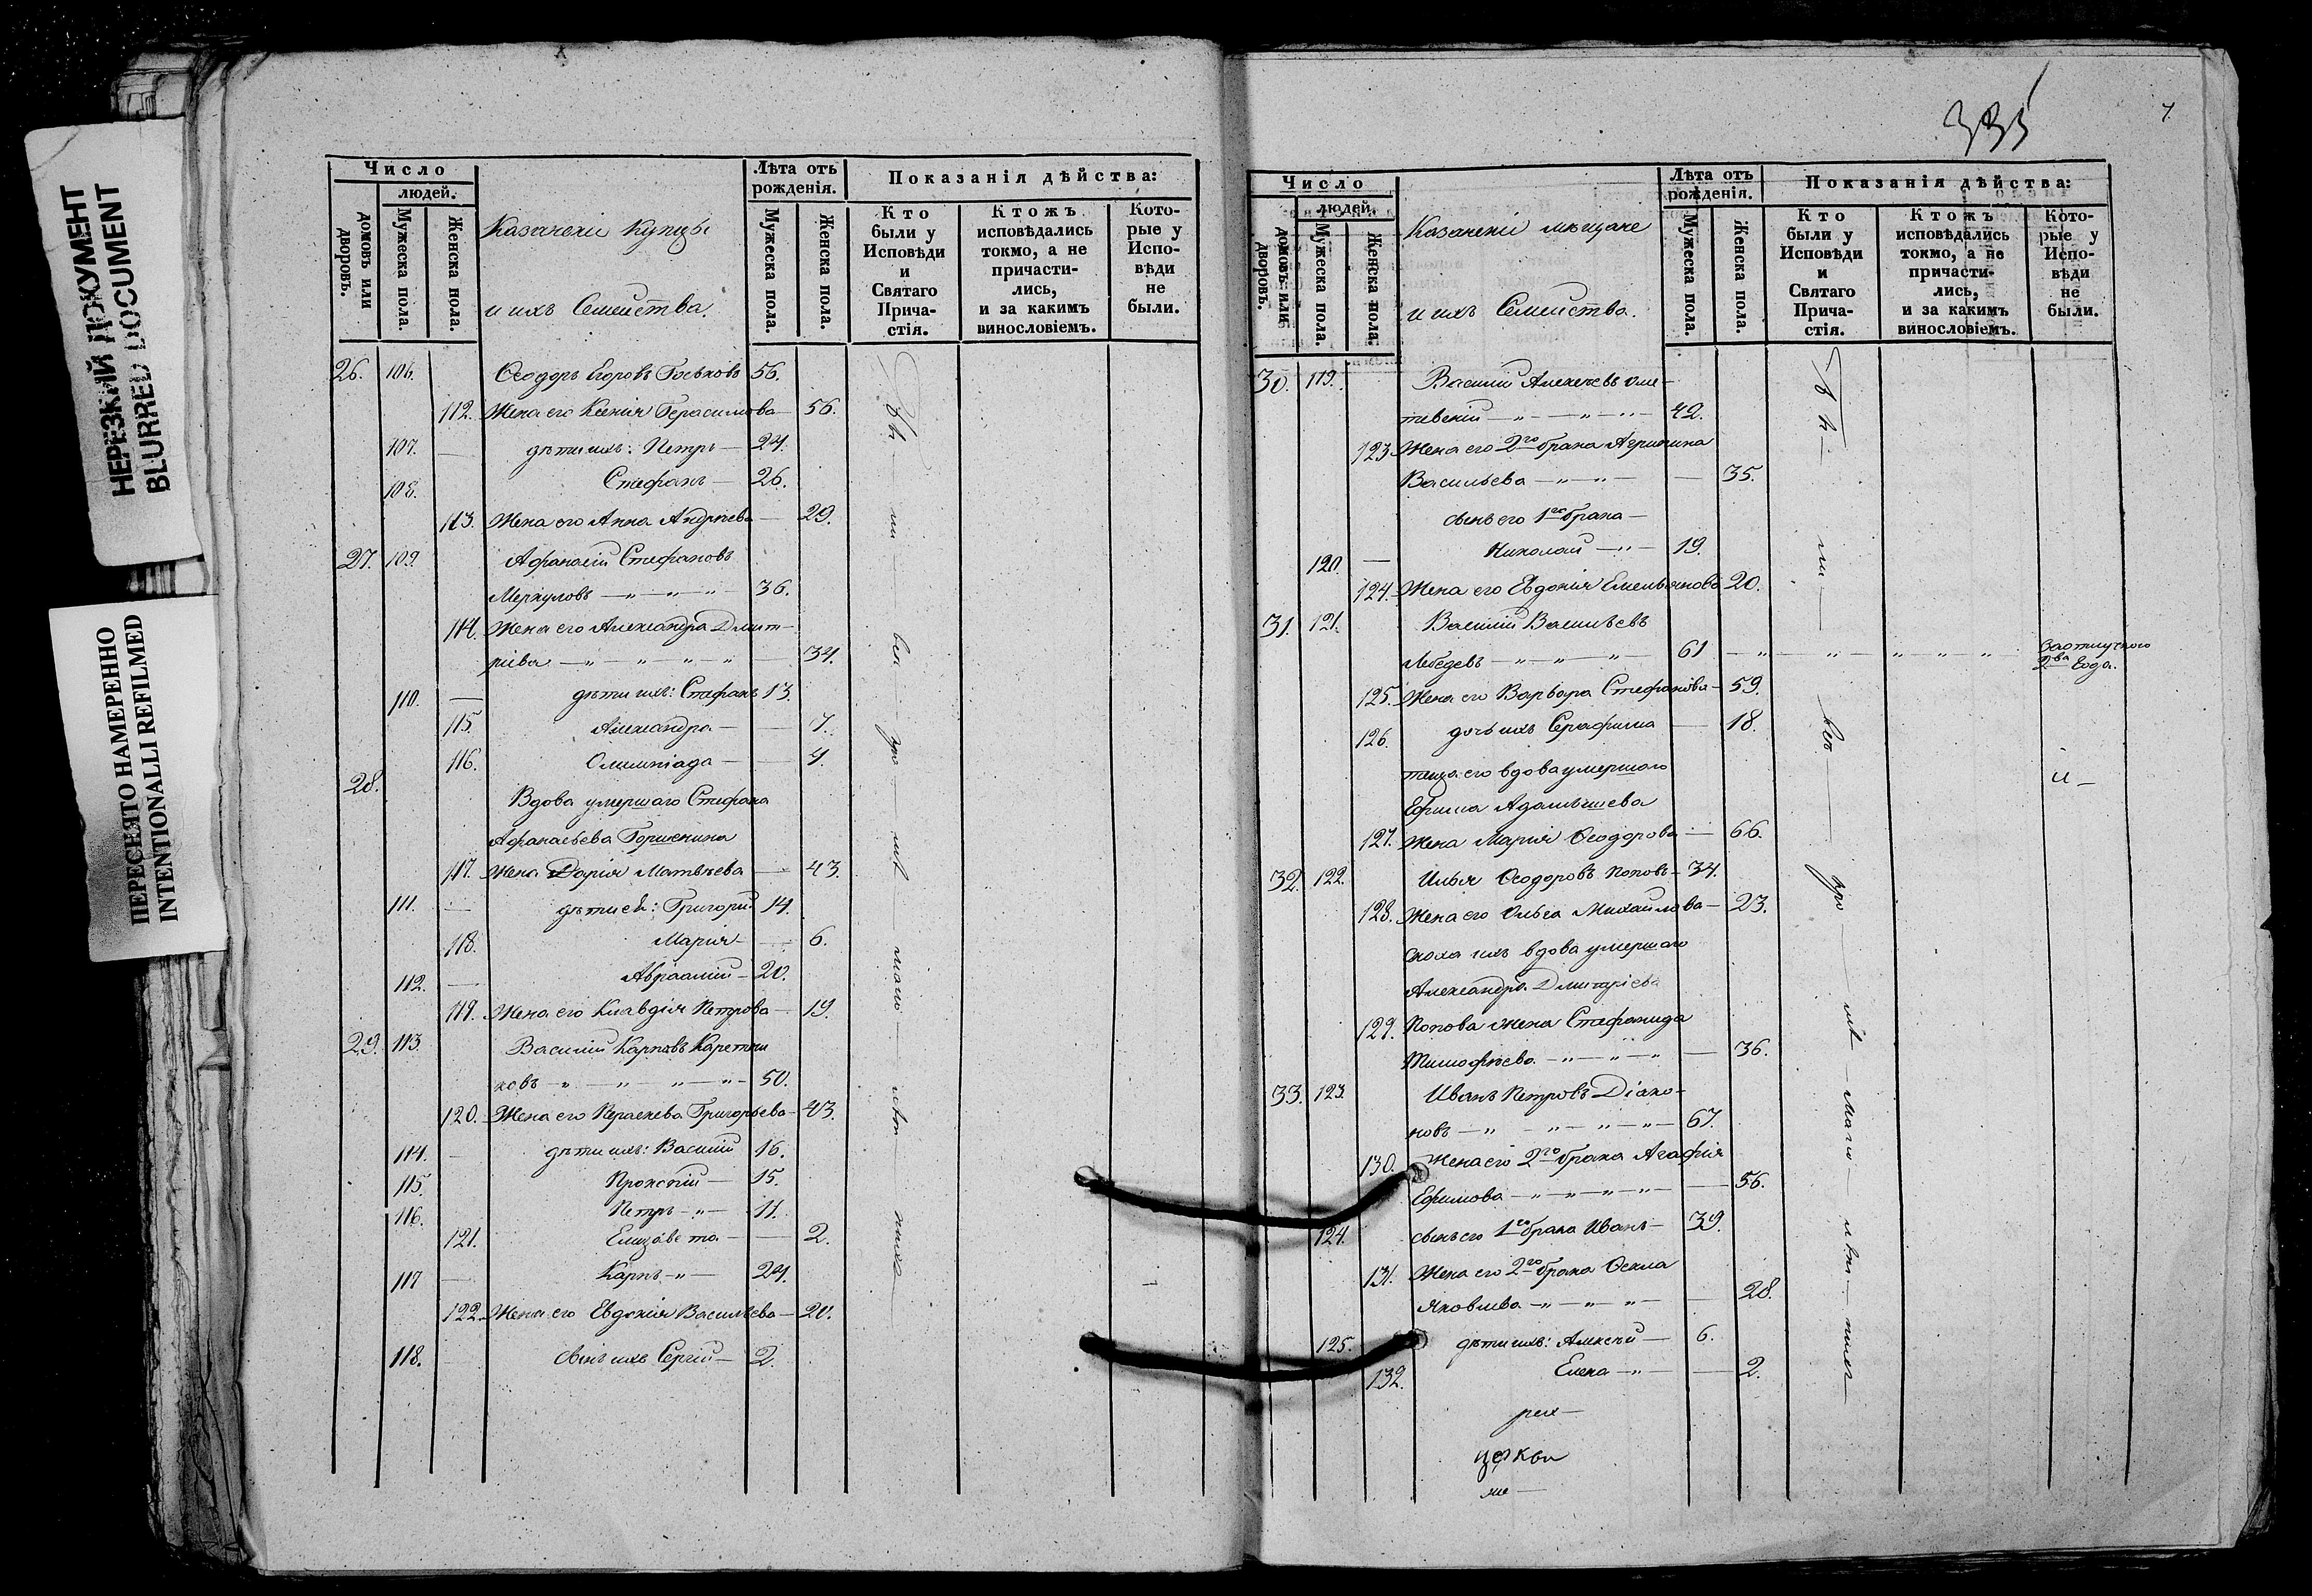 НЕРЕЗКИЙ ДОКУМЕНТ
BLURRED DOCUMENT
ПЕРЕСНЯТО НАМЕРЕННО
INTENTIONALLI REFILMED
Число
людей.
домовъ или дворовъ.
Мужеска пола.
Женска пола.
Казанскіи купцы
и ихъ Семейства.
Лѣта отъ рожденія.
Мужеска пола.
Женска пола.
Показанія дѣйства:
Кто были у Исповѣди и Святаго Прича-стія.
Ктожъ исповѣдались токмо, а не причасти-лись, и за какимъ винословіемъ.
Кото-рые у Испо-вѣди не были.
26. 106. Ѳеодоръ Егоровъ 56.
112. Жена его Ксенія Герасимова — 56.
107. — дѣти ихъ: Петръ — 24.
108. Стефанъ — 26.
113. Жена его Анна Андрѣева — 29.
27. 109. Афанасій Стефановъ
Меркуловъ — „ — „ — „ — 36.
114. Жена его Александра Димит-
ріева — „ — „ — „ — „ — 34.
110. — дѣти ихъ: Стефанъ 13.
115. Александра — 7.
116. Олимпіада — 4.
28. Вдова умершаго Стефана
Афанасьева Горшенина
117. Жена Дарія Матвѣева — 43.
111. — дѣти ея: Григорій 14.
118. Марія — 6.
112. — Авраамій — 20.
119. Жена его Клавдія Петрова — 19.
29. 113. Василій Карповъ Каретни
ковъ — „ — „ — „ — „ — 50.
120. Жена его Параскева Григорьева — 43.
114. — дѣти ихъ: Василій 16.
115. Прокопій — 15.
116. Петръ — „ — 11.
121. Елизавета — 2.
117 — Карпъ — „ — 24.
122. Жена его Евдокія Васильева — 20.
118. — сынъ ихъ Сергій — 2.
335
7
Число
людей.
домовъ или дворовъ.
Мужеска пола.
Женска пола.
Казанскіи мѣщане
и ихъ Семейства.
Лѣта отъ рожденія.
Мужеска пола.
Женска пола.
Показанія дѣйства:
Кто были у Исповѣди и Святаго Прича-стія.
Ктожъ исповѣдались токмо, а не причасти-лись, и за какимъ винословіемъ.
Кото-рые у Испо-вѣди не были.
30. 119. Василій Алексѣевъ
42.
123 Жена его 2го брака
Васильева — „ — „ — 35.
сынъ его 1го брака —
120. — Николай — „ — 19.
124. Жена его Евдокія Емельянова 20.
31. 121. Василій Васильевъ
Лебедевъ — „ — „ — „ — 61 — „ — „ — „ — „ — „
2ва года.
125. Жена его Варвара Стефанова — 59.
126. дочь ихъ Серафима — 18.
теща его вдова умершаго
Ефима Адамышева
127. Жена Марія Ѳеодорова — 66.
32. 122. Илья Ѳеодоровъ Поповъ — 34.
128. Жена его Ольга Михайлова — 23.
сноха ихъ вдова умершаго
Александра Димитріева
129. Попова жена Стефанида
Тимофѣева — „ — „ — „ — 36.
33. 123. Иванъ Петровъ Діако-
новъ — „ — „ — „ — „ — 67.
130. Жена его 2го брака Агафія
Ефимова — „ — „ — „ — „ — 56.
124. сынъ его 1го брака Иванъ — 39.
131. Жена его 2го брака Ѳекла
Яковлева — „ — „ — „ — 28.
125. дѣти ихъ: Алексѣй — 6.
132. Елена — „ — 2.
рех —
церкви